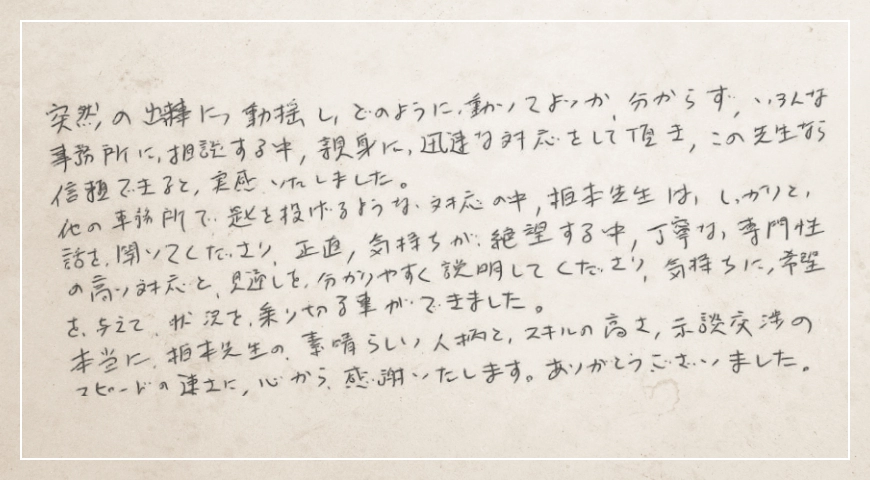 突然の出来事につ動揺し、どのように、動いてよいか、分からず、いろんな
事務所に、相談する中、親身に、迅速な対応をして頂き、この先生なら
信頼できると、実感いたしました。
他の事務所で、匙を投げるような、対応の中、坂本先生は、しっかりと、
話を、聞いてくださり、正直、気持ちが、絶望する中、丁寧な、専門性
の高い対応と、見通しを、分かりやすく説明してくださり、気持ちに、希望
を、与えて、状況を、乗り切る事ができました。
本当に、坂本先生の、素晴らしい人柄と、スキルの高さ、示談交渉の
スピードの速さに、心から、感謝いたします。ありがとうございました。